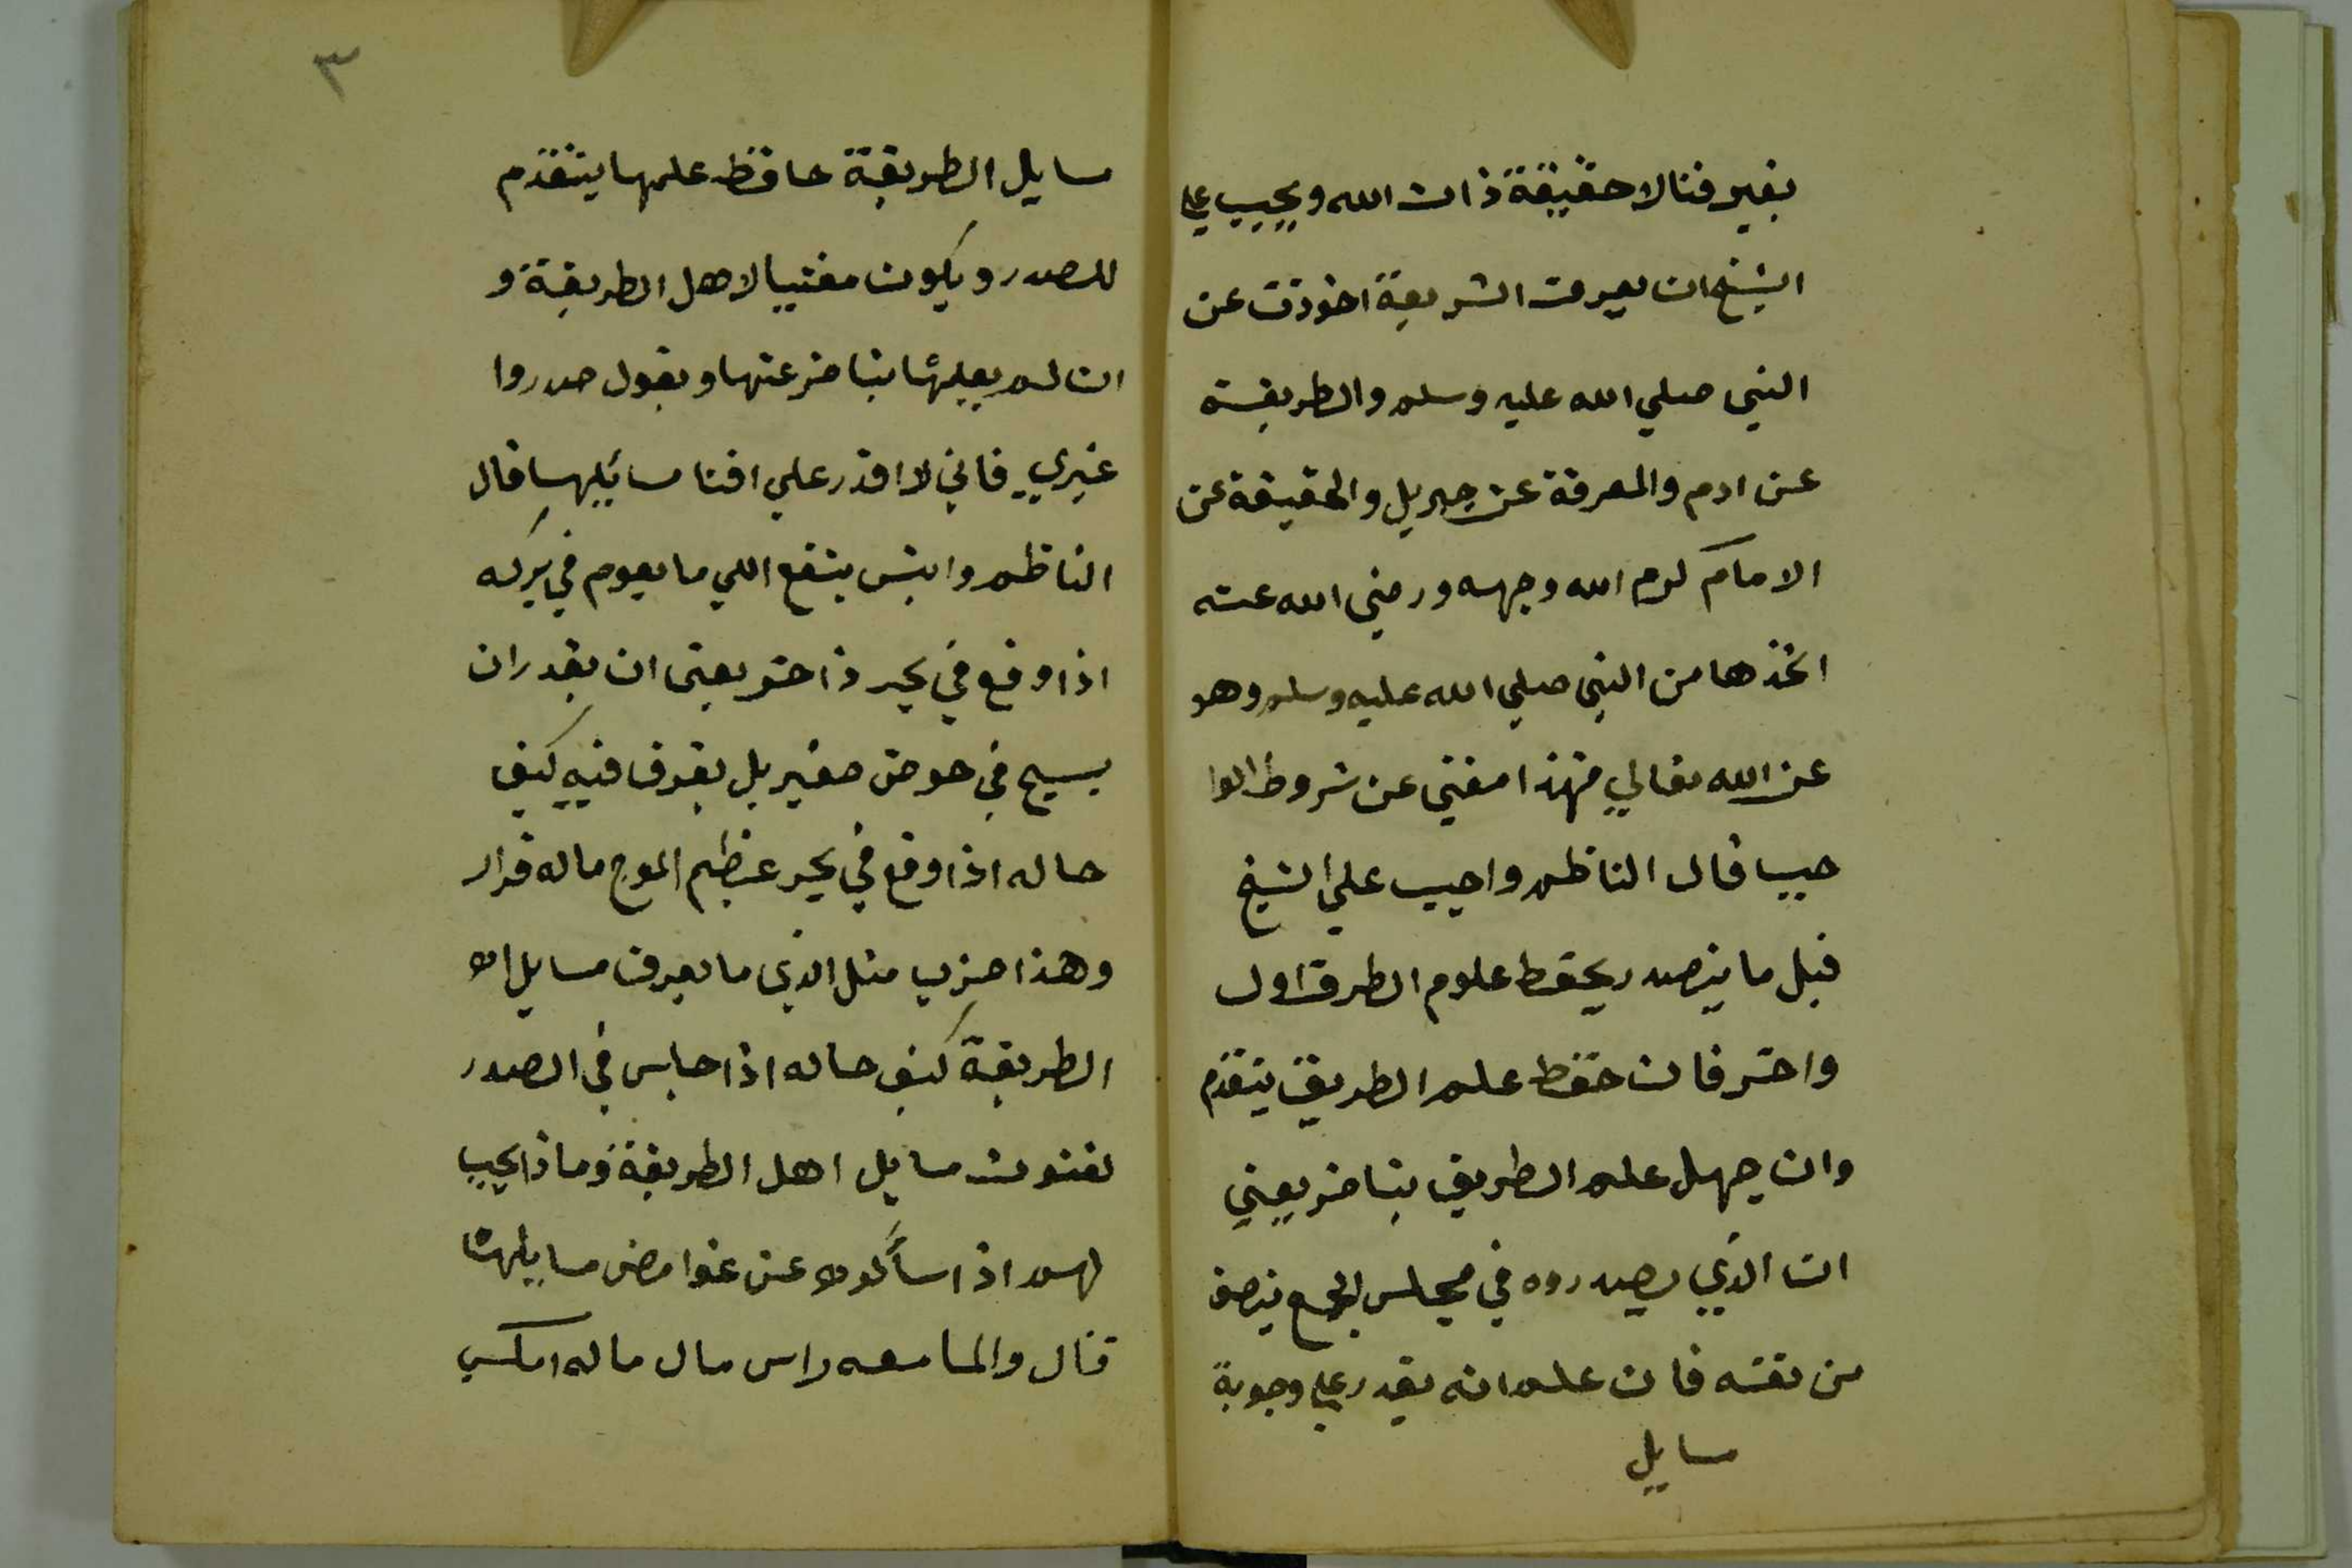 بغير فنا لا حقيقة ذات الله ويجيب علي
الشيخ ان يعرف الشريعة اخوذت عن
النبي صلي الله عليه وسلم والطريقة
عن ادم والمعرفة عن جبريل والحقيقة عن
الامام كرم الله وجهه ورضي الله عنه
اخذها من النبي صلي الله عليه وسلم وهو
عن الله تعالي فهذا مغني عن شروط الوا
جب قال الناظم واجب علي الشيخ
قبل ما يتصدر يحفظ علوم الطرق اول
واخر فان حفظ علم الطريق يتقدم
وان جهل علم الطريق يتاخر يعني
ان الذي يصدروه في مجلس الجمع ينصف
من نفسه فان علم انه يقدر علي وجوبة
سايل
٣
مسايل الطريقة حافظ علمها يتقدم
للصدر ويكون مفتيا لاهل الطريقة و
ان لم يعلمها يتاخر عنها ويقول صدروا
غيري فاني لا اقدر علي افتا مسائلها قال
الناظم وايش ينفع اللي ما يعوم في بركه
اذا وقع في بحر ذاخر يعني ان يقدر ان
يسبح في حوض صغير بل يغرق فيه كيف
حاله اذا وقع في بحر عظيم الموج ماله قرار
وهذا ضرب مثل الذي ما يعرف مسايل
الطريقة كيف حاله اذا جلس في الصدر
مسايل اهل الطريقة وماذا يجيب
لهم اذا سألوه عن غوامض مسايلها
قال والما معه راس مال ماله